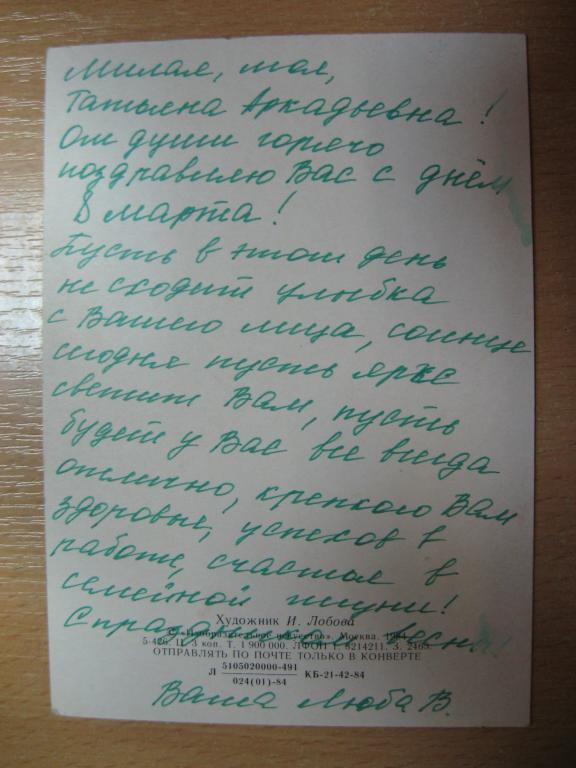 Милая, моя,
Татьяна Аркадьевна!
От души горячо
поздравляю Вас с днём
8 марта!
Пусть в этот день
не сходит улыбка
с Вашего лица, солнце
сегодня пусть ярче
светит Вам, пусть
будет у Вас все всегда
отлично, крепкого Вам
здоровье, успехов в
работе, счастья в
семейной жизни!
Художник И. Лобова
С праздником весны!
© «Изобразительное искусство». Москва. 1984
5-426. Ц. 3 коп. Т. 1 900 000. ЛФОП 1. 8214211. З. 2465.
ОТПРАВЛЯТЬ ПО ПОЧТЕ ТОЛЬКО В КОНВЕРТЕ
Л 5105020000-491 КБ-21-42-84
024(01)-84
Ваша Люба В.